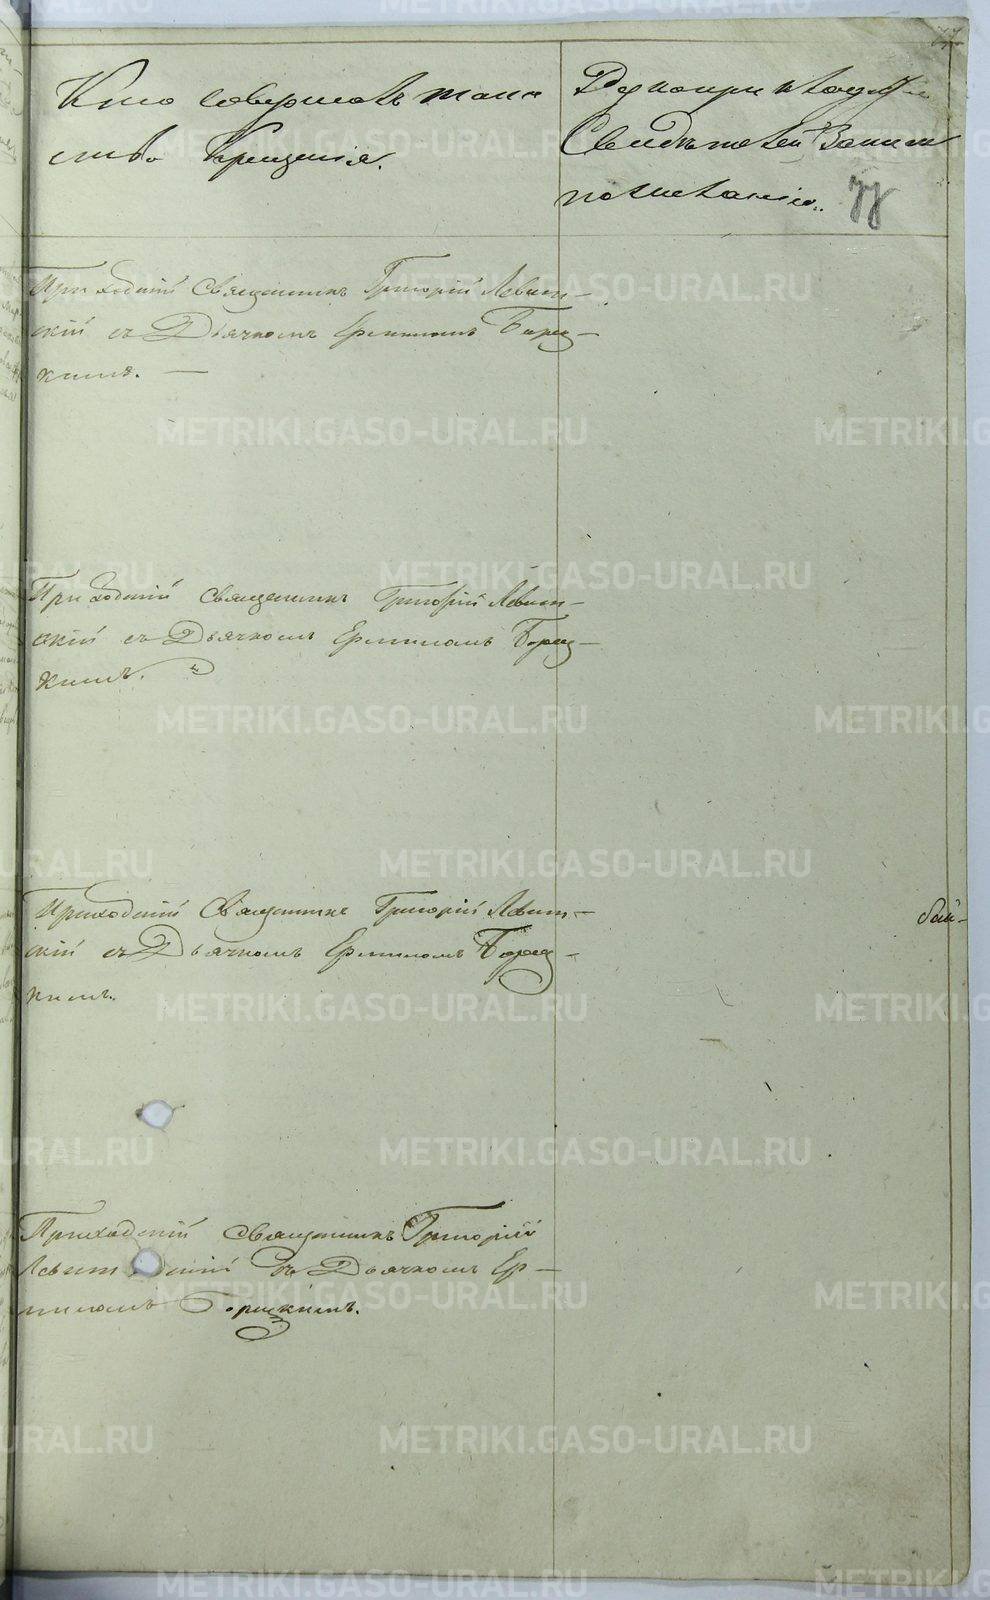 Кто совершалъ таин-
ство Крещенія.
Рукоприкладство
Свидѣтелей записи
по желанію.
77
Приходскій Священникъ Григорій Левит-
скій съ Дьячкомъ Ермиломъ Борец-
кимъ. —
Приходскій Священникъ Григорій Левит-
скій съ Дьячкомъ Ермиломъ Борец-
кимъ.
Приходскій Священникъ Григорій Левит-
скій съ Дьячкомъ Ермиломъ Борец-
кимъ.
Приходскій Священникъ Григорій
Левитскій съ Дьячкомъ Ер-
миломъ Борецкимъ.
METRIKI.GASO-URAL.RU